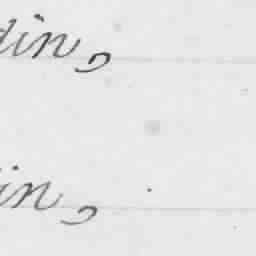 din,
in,